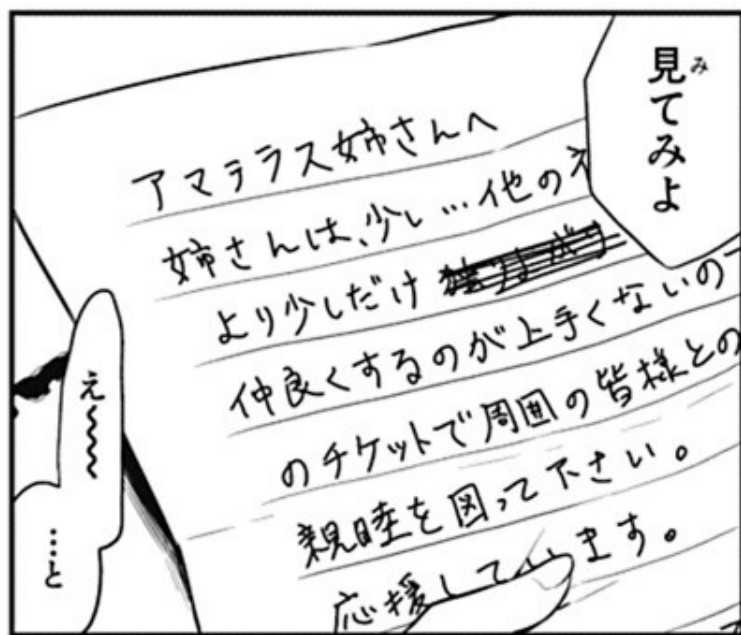 見てみよ
み
アマテラス姉さんへ
姉さんは、少し…他の
より少しだけ
仲良くするのが上手くないの
のチケットで周囲の皆様との
親睦を図って下さい。
応援しています。
え〜〜〜
…と